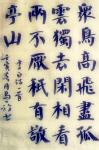 衆鳥高飛盡孤
雲獨去閑相看
兩不厭祇有敬
亭山
李白詩一首